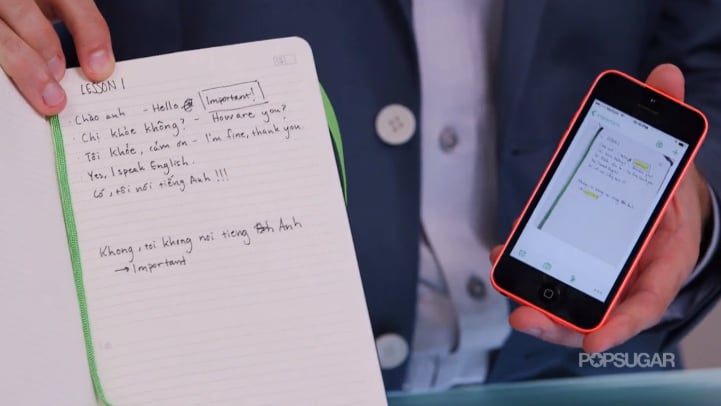 LESSON 1
· Chào anh - Hello Important!
· Chị khỏe không? - How are you?
· Tôi khỏe, cảm ơn - I'm fine, thank you.
Yes, I speak English.
Có, tôi nói tiếng Anh!!!
Khong, toi khong noi tieng Anh
→ Important
POPSUGAR